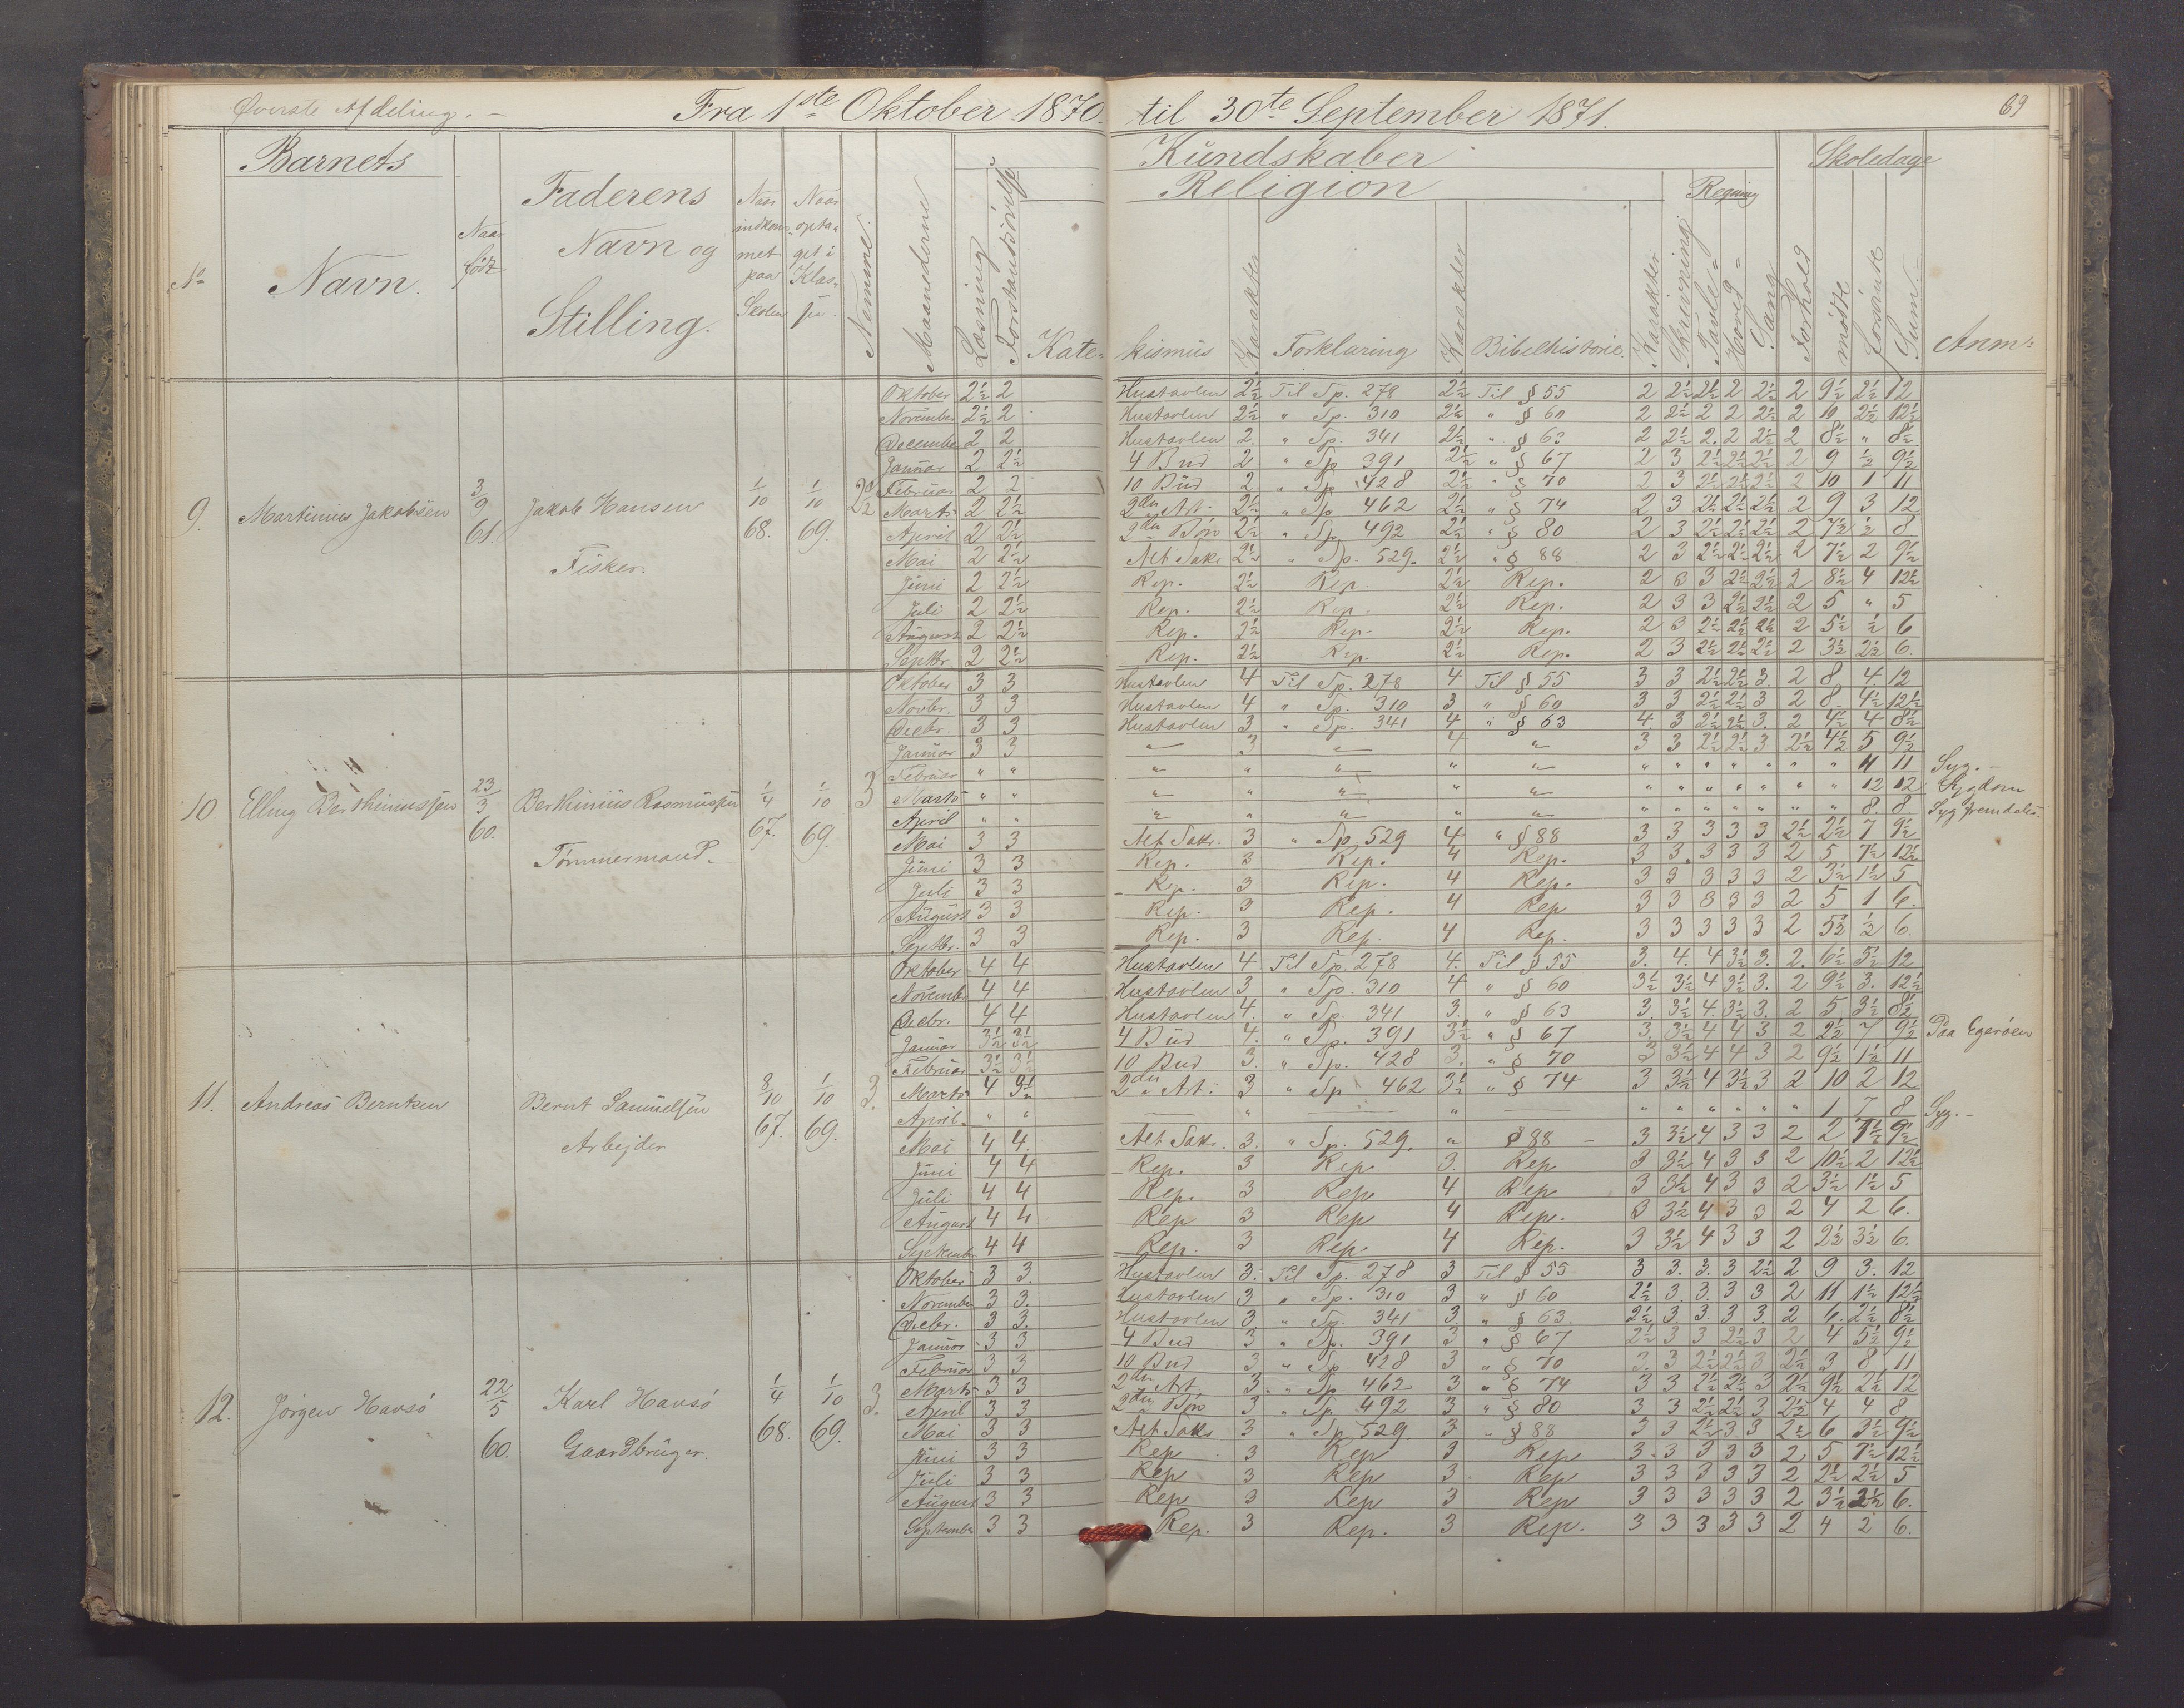 Øverste Afdeling. — Fra 1ste Oktober 1870. til 30te September 1871. 69
Barnets Kundskaber Skoledage
Religion Regning
No Navn. Naar født Faderens Navn og Stilling. Naar indkommet paa Skolen Naar optaget i Klassen. Nemme. Maanederne Læsning Forstandsøvelse Katekismus Karakter Forklaring Karakter Bibelhistorie. Karakter Skrivning Tavle= Hoved= Sang Forhold mødte forsømte Sum. Anm:
9. Martinius Jakobsen 3/9 61. Jakob Hansen Fisker. 1/10 68. 1/10 69.
Oktober 2½ 2 Hustavlen 2½ Til Sp. 278 2½ Til § 55 2 2½ 2½ 2 2½ 2 9½ 2½ 12
November 2½ 2 Hustavlen 2½ " Sp. 310 2½ " § 60 2 2½ 2 2 2½ 2 10 2½ 12½
December 2 2 Hustavlen 2. " Sp. 341 2½ " § 63 2 2½ 2. 2 2½ 2 8½ " 8½
Januar 2 2½ 4 Bud 2 " Sp 391 2½ " § 67 2 3 2½ 2½ 2½ 2 9 ½ 9½
Februar 2 2 10 Bud 2 " Sp 428 2½ " § 70 2 3 2½ 2½ 2½ 2 10 1 11
Marts 2 2½ 2den Art. 2½ " Sp 462 2½ " § 74 2 3 2½ 2½ 2½ 2 9 3 12
April 2 2½ 2den Bøn 2½ " Sp 492 2½ " § 80 2 3 2½ 2½ 2½ 2 7½ ½ 8
Mai 2 2½ Alt Sakr 2½ " Sp. 529. 2½ " § 88 2 3 2½ 2½ 2½ 2 7½ 2 9½
Juni 2 2½ Rep. 2½ Rep. 2½ Rep. 2 3 3 2½ 2½ 2 8½ 4 12½
Juli 2 2½ Rep. 2½ Rep. 2½ Rep. 2 3 3 2½ 2½ 2 5 " 5
August 2 2½ Rep. 2½ Rep. 2½ Rep. 2 3 2½ 2½ 2½ 2 5½ ½ 6
Septbr. 2 2½ Rep. 2½ Rep. 2½ Rep. 2 3 2½ 2½ 2½ 2 3½ 2½ 6.
10. Elling Berthiniussen 23/3 60. Berthinius Rasmussen Tømmermand. 1/4 67. 1/10 69. 3
Oktober 3 3 Hustavlen 4 Til Sp. 278 4 Til § 55 3 3 2½ 2½ 3. 2 8 4 12
Novbr. 3 3 Hustavlen 4 " Sp. 310 3 " § 60 3 3 2½ 2½ 3 2 8 4½ 12½
Decbr. 3 3 Hustavlen 3 " Sp. 341 4 " § 63 4. 3 2½ 2½ 3. 2 4½ 4 8½
Januar 3 3 " 3 " 4 " 3 3 2½ 2½ 3 2½ 4½ 5 9½
Februar " " " " " " " " " " " " " " 11 11 Syg. —
Marts " " " " " " " " " " " " " " 12 12 Sygdom
April " " " " " " " " " " " " " " 8. 8 Syg fremdeles.
Mai 3 3 Alt Sakr. 3 " Sp 529 4 " § 88 3 3 3 3 3 2½ 2½ 7 9½
Juni 3 3 Rep. 3 Rep. 4 Rep. 3 3 3 3 3 2 5 7½ 12½
Juli 3 3 Rep. 3 Rep. 4 Rep. 3 3 3 3 3 2 3½ 1½ 5
August 3 3 Rep. 3 Rep. 4 Rep 3 3 3 3 3 2 5 1 6.
Septbr. 3 3 Rep. 3 Rep. 4 Rep. 3 3 3 3 3 2 5½ ½ 6.
11. Andreas Berntsen Bernt Samuelsen Arbejder 8/10 67. 1/10 69. 3.
Oktober 4 4 Hustavlen 4 Til Sp. 278 4. Til § 55 3. 4. 4 3½ 3. 2. 6½ 5½ 12
Novembr 4 4 Hustavlen 3 " Sp. 310 4 " § 60 3½ 3½ 4 3½ 3. 2 9½ 3. 12½
Decbr. 4 4 Hustavlen 4. " Sp. 341 3. " § 63 3. 3½ 4. 3½ 3. 2 5 3½ 8½
Januar 3½ 3½ 4 Bud 4. " Sp. 391 3½ " § 67 3. 3½ 4 4 3 2 2½ 7 9½ Paa Egerøen
Februar 3½ 3½ 10 Bud 3. " Sp. 428 3. " § 70 3 3½ 4 4 3 2 9½ 1½ 11
Marts 4 3½ 2den Art. 3 " Sp 462 3½ " § 74 3 3½ 4 3½ 3 2 10 2 12
April " " — " — " — " " " " " " 1 7 8 Syg. —
Mai 4 4. Alt Sakr. 3. " Sp. 529. " § 88 — 3 3½ 4 3 3 2 2 7½ 9½
Juni 4 4 Rep. 3 Rep 3. Rep 3 3½ 4 3 3 2 10½ 2 12½
Juli 4 4 Rep. 3 Rep 4 Rep 3 3½ 4 3 3 2 3½ 1½ 5
August 4 4 Rep 3 Rep 4 Rep. 3 3½ 4 3 3 2 4 2 6.
Septembr 4 4 Rep. 3 Rep. 4 Rep. 3 3½ 4 3 3 2 2½ 3½ 6.
12. Jørgen Havsø 22/5 60. Karl Havsø Gaardbruger. 1/4 68. 1/10 69. 3.
Oktober 3 3. Hustavlen 3. Til Sp. 278 3 Til § 55 3 3. 3. 3 2½ 2 9 3. 12
November 3 3. Hustavlen 3 " Sp. 310 3 " § 60 2½ 3 3. 3 3 2 11 1½ 12½
Decbr. 3 3. Hustavlen 3 " Sp. 341 3. " § 63. 2½ 3. 3. 3 3. 2 6. 2½ 8½
Januar 3 3 4 Bud 3 " Sp. 391 3 " § 67 2½ 3 3 2½ 3 2 4 5½ 9½
Februar 3 3 10 Bud 3 " Sp 428 3 " § 70 3. 3 2½ 2½ 3 2½ 3 8 11
Marts 3 3 2den Art 3. " Sp. 462 3 " § 74 3 3 2½ 2½ 3 2½ 9½ 2½ 12
April 3 3 2den Bøn 3 " Sp. 492 3 " § 80 3 3 2½ 2½ 3 2½ 4 4 8
Mai 3 3 Alt Sakr 3 " Sp 529. 3 " § 88 3 3 2½ 3 3 2½ 6 3½ 9½
Juni 3 3 Rep 3 Rep 3 Rep 3. 3 3 3 3 2. 5 7½ 12½
Juli 3 3 Rep 3 Rep 3 Rep 3 3 3 3 3 2 2½ 2½ 5
August 3 3 Rep 3 Rep 3 Rep 3 3 3 3 3 2 3½ 2½ 6.
September 3 3 Rep. 3 Rep. 3 Rep. 3 3 3 3 3 2 4 2 6.